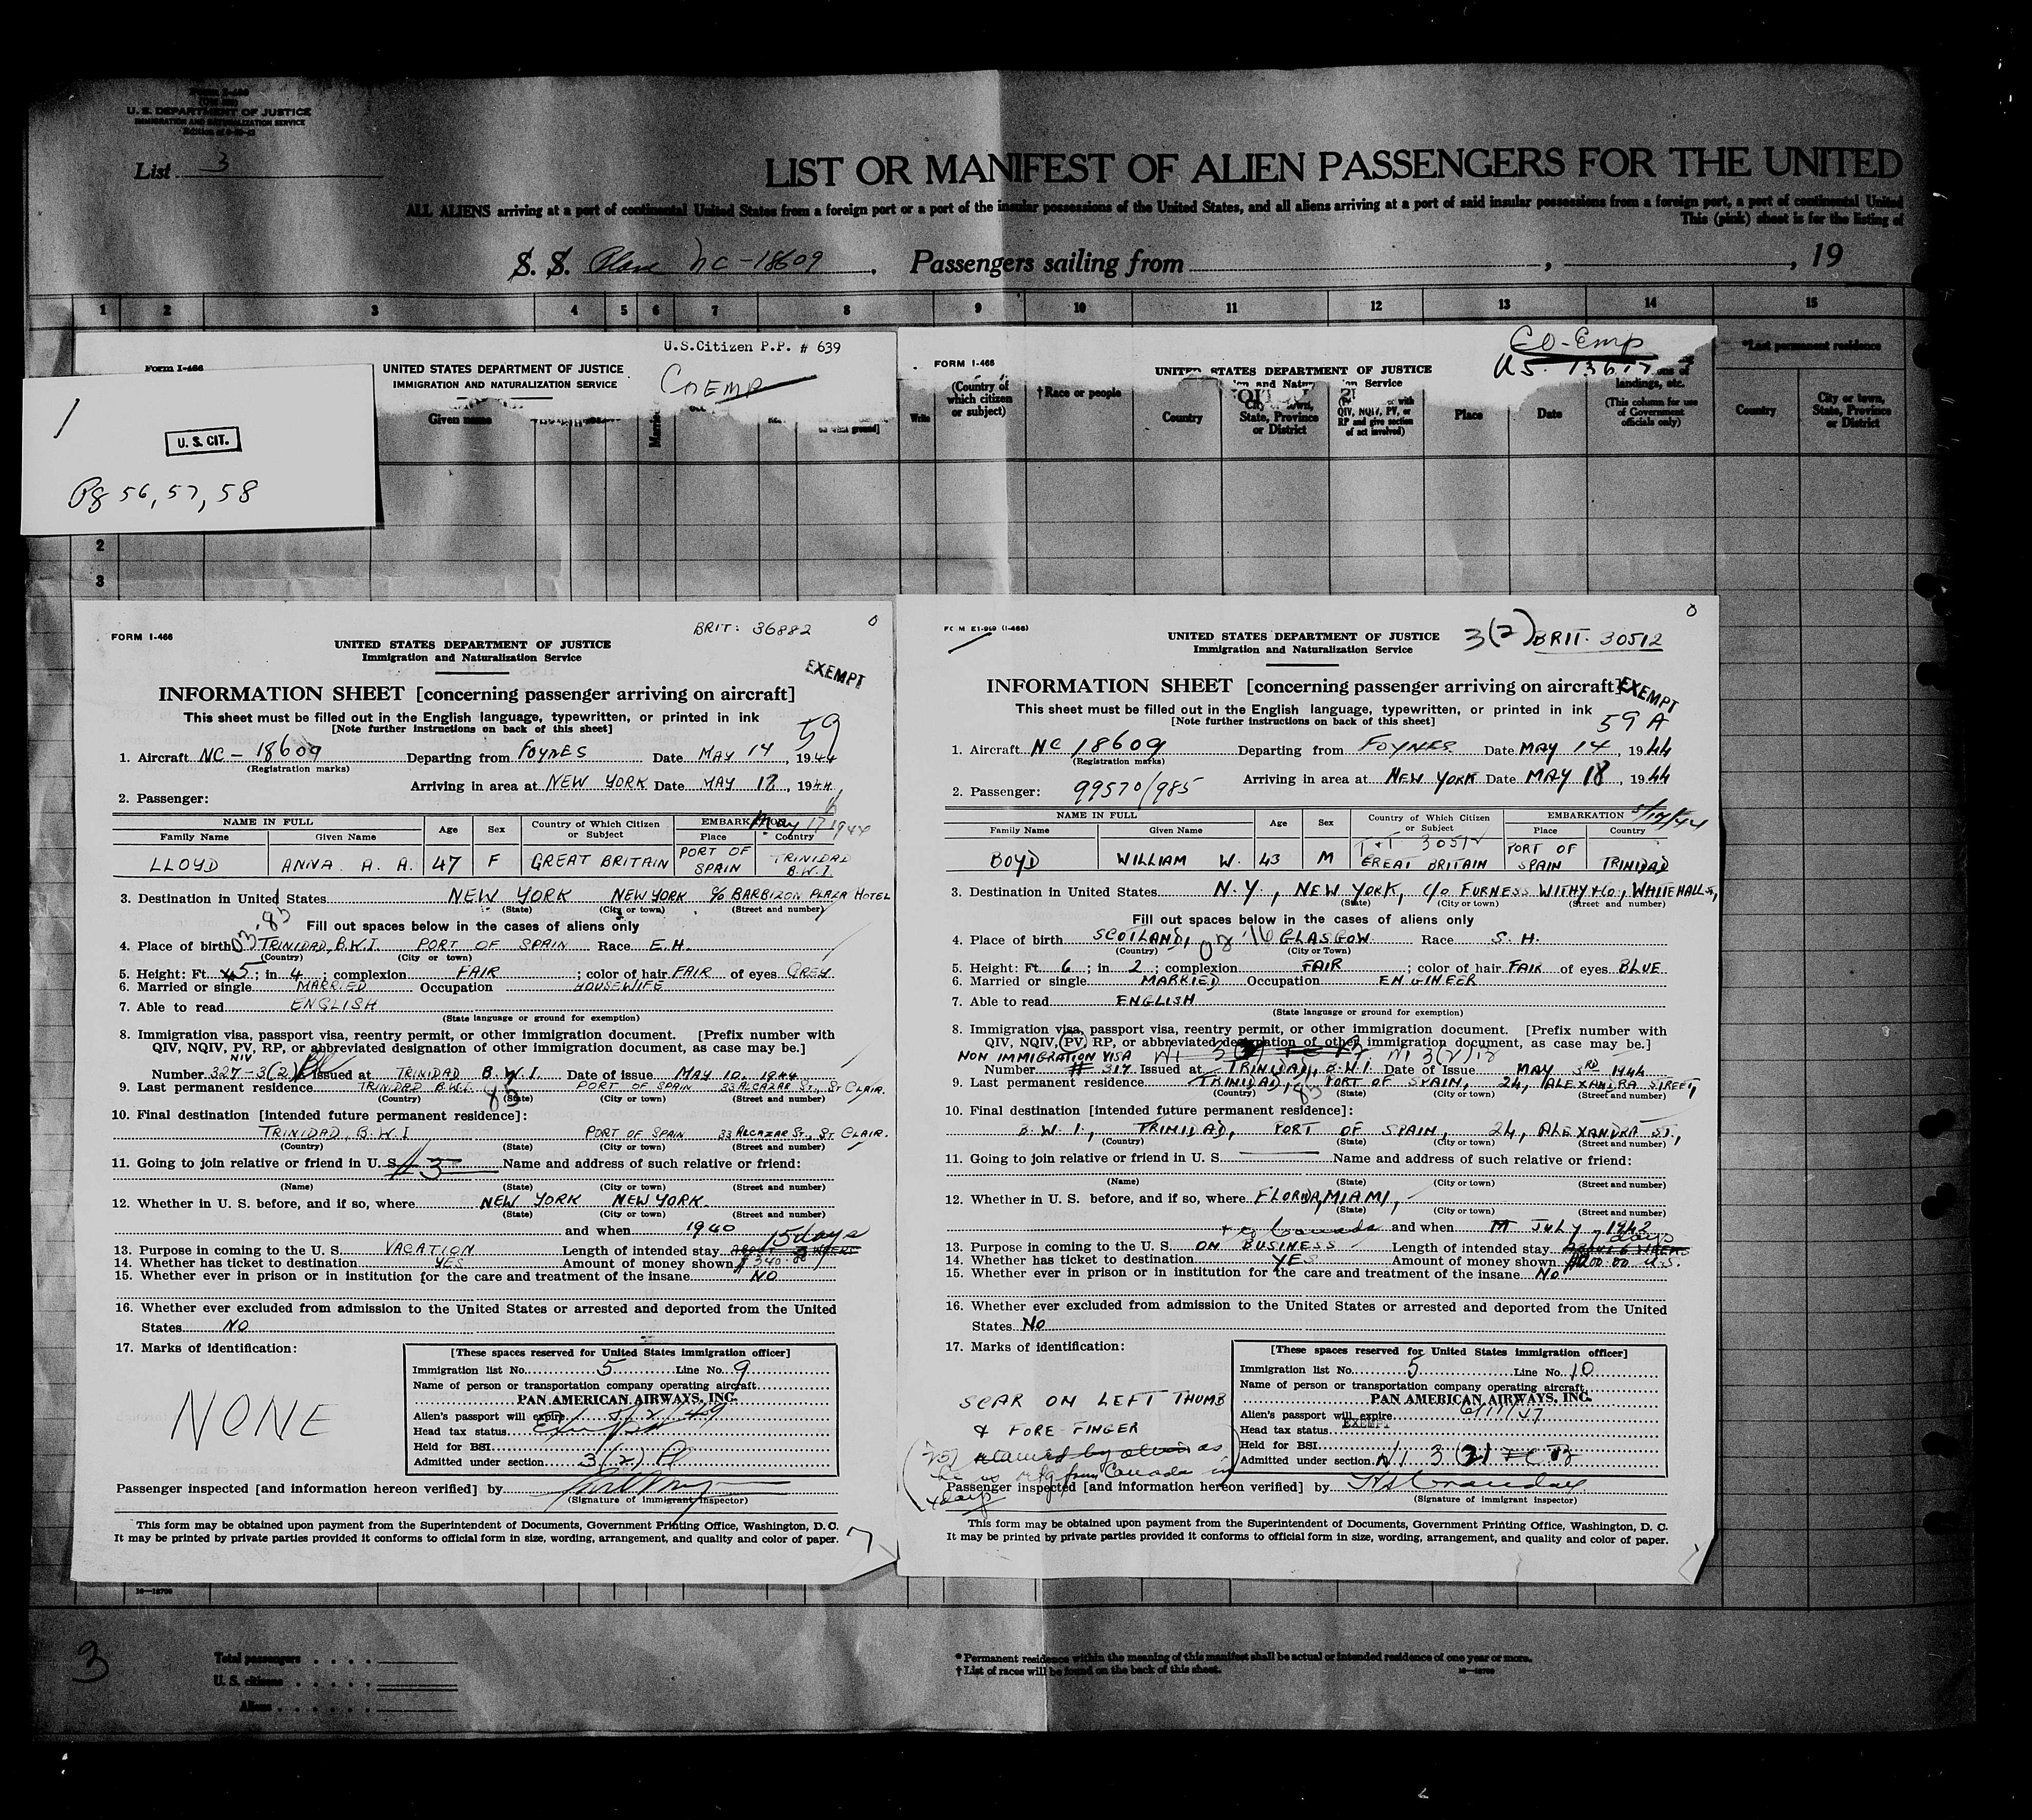 Form I-466
U. S. DEPARTMENT OF JUSTICE
IMMIGRATION AND NATURALIZATION SERVICE
List 3
LIST OR MANIFEST OF ALIEN PASSENGERS FOR THE UNITED
ALL ALIENS arriving at a port of continental United States from a foreign port or a port of the insular possessions of the United States, and all aliens arriving at a port of said insular possessions from a foreign port, a port of continental United
This (pink) sheet is for the listing of
S. S. Plane NC-18609. Passengers sailing from , , 19
1 2 3 4 5 6 7 8 9 10 11 12 13 14 15
U.S.Citizen P.P. # 639
Form I-466
UNITED STATES DEPARTMENT OF JUSTICE
IMMIGRATION AND NATURALIZATION SERVICE
COEMP
Given name
1
U. S. CIT.
Pg 56, 57, 58
2
3
FORM I-466
UNITED STATES DEPARTMENT OF JUSTICE
CO-Emp
(Country of which citizen or subject)
†Race or people
Country
State, Province or District
QIV, NQIV, PV, or RP and give section of act involved)
Place
Date
landings, etc.
(This column for use of Government officials only)
*Last permanent residence
Country
City or town, State, Province or District
FORM I-466
BRIT: 36882
UNITED STATES DEPARTMENT OF JUSTICE
Immigration and Naturalization Service
EXEMPT
INFORMATION SHEET [concerning passenger arriving on aircraft]
This sheet must be filled out in the English language, typewritten, or printed in ink
[Note further instructions on back of this sheet]
59
1. Aircraft NC-18609 Departing from FOYNES Date MAY 14, 1944
(Registration marks)
Arriving in area at NEW YORK Date MAY 18, 1944
2. Passenger:
May 17 1944
NAME IN FULL Age Sex Country of Which Citizen or Subject EMBARKATION
Family Name Given Name Place Country
LLOYD ANNA. A. A. 47 F GREAT BRITAIN PORT OF SPAIN TRINIDAD B.W.I
3. Destination in United States NEW YORK NEW YORK c/o BARBIZON PLAZA HOTEL
(State) (City or town) (Street and number)
Fill out spaces below in the cases of aliens only
4. Place of birth TRINIDAD, B.W.I PORT OF SPAIN Race E.H.
(Country) (City or town)
5. Height: Ft. 5; in 4; complexion FAIR; color of hair FAIR of eyes GREY
6. Married or single MARRIED Occupation HOUSEWIFE
7. Able to read ENGLISH
(State language or ground for exemption)
8. Immigration visa, passport visa, reentry permit, or other immigration document. [Prefix number with
QIV, NQIV, PV, RP, or abbreviated designation of other immigration document, as case may be.]
NIV
Number 327-3(2) Issued at TRINIDAD B.W.I. Date of issue MAY 10, 1944
9. Last permanent residence TRINIDAD B.W.I. PORT OF SPAIN 33 ALCAZAR ST., ST CLAIR.
(Country) (State) (City or town) (Street and number)
10. Final destination [intended future permanent residence]:
TRINIDAD, B.W.I PORT OF SPAIN 33 ALCAZAR ST., ST CLAIR.
(Country) (State) (City or town) (Street and number)
11. Going to join relative or friend in U. S. Name and address of such relative or friend:
(Name) (State) (City or town) (Street and number)
12. Whether in U. S. before, and if so, where NEW YORK NEW YORK.
(State) (City or town) (Street and number)
and when 1940
15 days
13. Purpose in coming to the U. S. VACATION Length of intended stay
14. Whether has ticket to destination YES Amount of money shown
15. Whether ever in prison or in institution for the care and treatment of the insane NO
16. Whether ever excluded from admission to the United States or arrested and deported from the United
States NO
17. Marks of identification:
NONE
[These spaces reserved for United States immigration officer]
Immigration list No. 5 Line No. 9
Name of person or transportation company operating aircraft
PAN AMERICAN AIRWAYS, INC.
Alien's passport will expire 5/2/49
Head tax status
Held for BSI
Admitted under section 3(2)
Passenger inspected [and information hereon verified] by
(Signature of immigrant inspector)
This form may be obtained upon payment from the Superintendent of Documents, Government Printing Office, Washington, D. C.
It may be printed by private parties provided it conforms to official form in size, wording, arrangement, and quality and color of paper.
UNITED STATES DEPARTMENT OF JUSTICE
Immigration and Naturalization Service
3(2) BRIT. 30512
EXEMPT
INFORMATION SHEET [concerning passenger arriving on aircraft]
This sheet must be filled out in the English language, typewritten, or printed in ink
[Note further instructions on back of this sheet]
59 A
1. Aircraft NC 18609 Departing from FOYNES Date MAY 14, 1944
(Registration marks)
Arriving in area at NEW YORK Date MAY 18, 1944
2. Passenger: 99570/985
NAME IN FULL Age Sex Country of Which Citizen or Subject EMBARKATION
Family Name Given Name Place Country
BOYD WILLIAM W. 43 M GREAT BRITAIN PORT OF SPAIN TRINIDAD
3. Destination in United States N.Y., NEW YORK, C/o FURNESS WITHY & Co, WHITEHALL ST,
(State) (City or town) (Street and number)
Fill out spaces below in the cases of aliens only
4. Place of birth SCOTLAND, GLASGOW Race S. H.
(Country) (City or Town)
5. Height: Ft. 6; in 2; complexion FAIR; color of hair FAIR of eyes BLUE
6. Married or single MARRIED Occupation ENGINEER
7. Able to read ENGLISH
(State language or ground for exemption)
8. Immigration visa, passport visa, reentry permit, or other immigration document. [Prefix number with
QIV, NQIV, PV, RP, or abbreviated designation of other immigration document, as case may be.]
NON IMMIGRATION VISA
Number # 317 Issued at TRINIDAD, B.W.I. Date of Issue MAY 3RD 1944
9. Last permanent residence TRINIDAD, PORT OF SPAIN, 24, ALEXANDRA STREET,
(Country) (State) (City or town) (Street and number)
10. Final destination [intended future permanent residence]:
B.W.I., TRINIDAD, PORT OF SPAIN, 24, ALEXANDRA ST.,
(Country) (State) (City or town) (Street and number)
11. Going to join relative or friend in U. S. Name and address of such relative or friend:
(Name) (State) (City or town) (Street and number)
12. Whether in U. S. before, and if so, where FLORIDA, MIAMI,
(State) (City or town) (Street and number)
and when JULY 1942
13. Purpose in coming to the U. S. ON BUSINESS Length of intended stay days
14. Whether has ticket to destination YES Amount of money shown $200.00 U.S.
15. Whether ever in prison or in institution for the care and treatment of the insane No
16. Whether ever excluded from admission to the United States or arrested and deported from the United
States No
17. Marks of identification:
SCAR ON LEFT THUMB
& FORE-FINGER
[These spaces reserved for United States immigration officer]
Immigration list No. 5 Line No. 10
Name of person or transportation company operating aircraft
PAN AMERICAN AIRWAYS, INC.
Alien's passport will expire
Head tax status EXEMPT
Held for BSI
Admitted under section NI 3(2)
Passenger inspected [and information hereon verified] by
(Signature of immigrant inspector)
This form may be obtained upon payment from the Superintendent of Documents, Government Printing Office, Washington, D. C.
It may be printed by private parties provided it conforms to official form in size, wording, arrangement, and quality and color of paper.
3
Total passengers
U. S. citizens
Aliens
* Permanent residence within the meaning of this manifest shall be actual or intended residence of one year or more.
† List of races will be found on the back of this sheet.